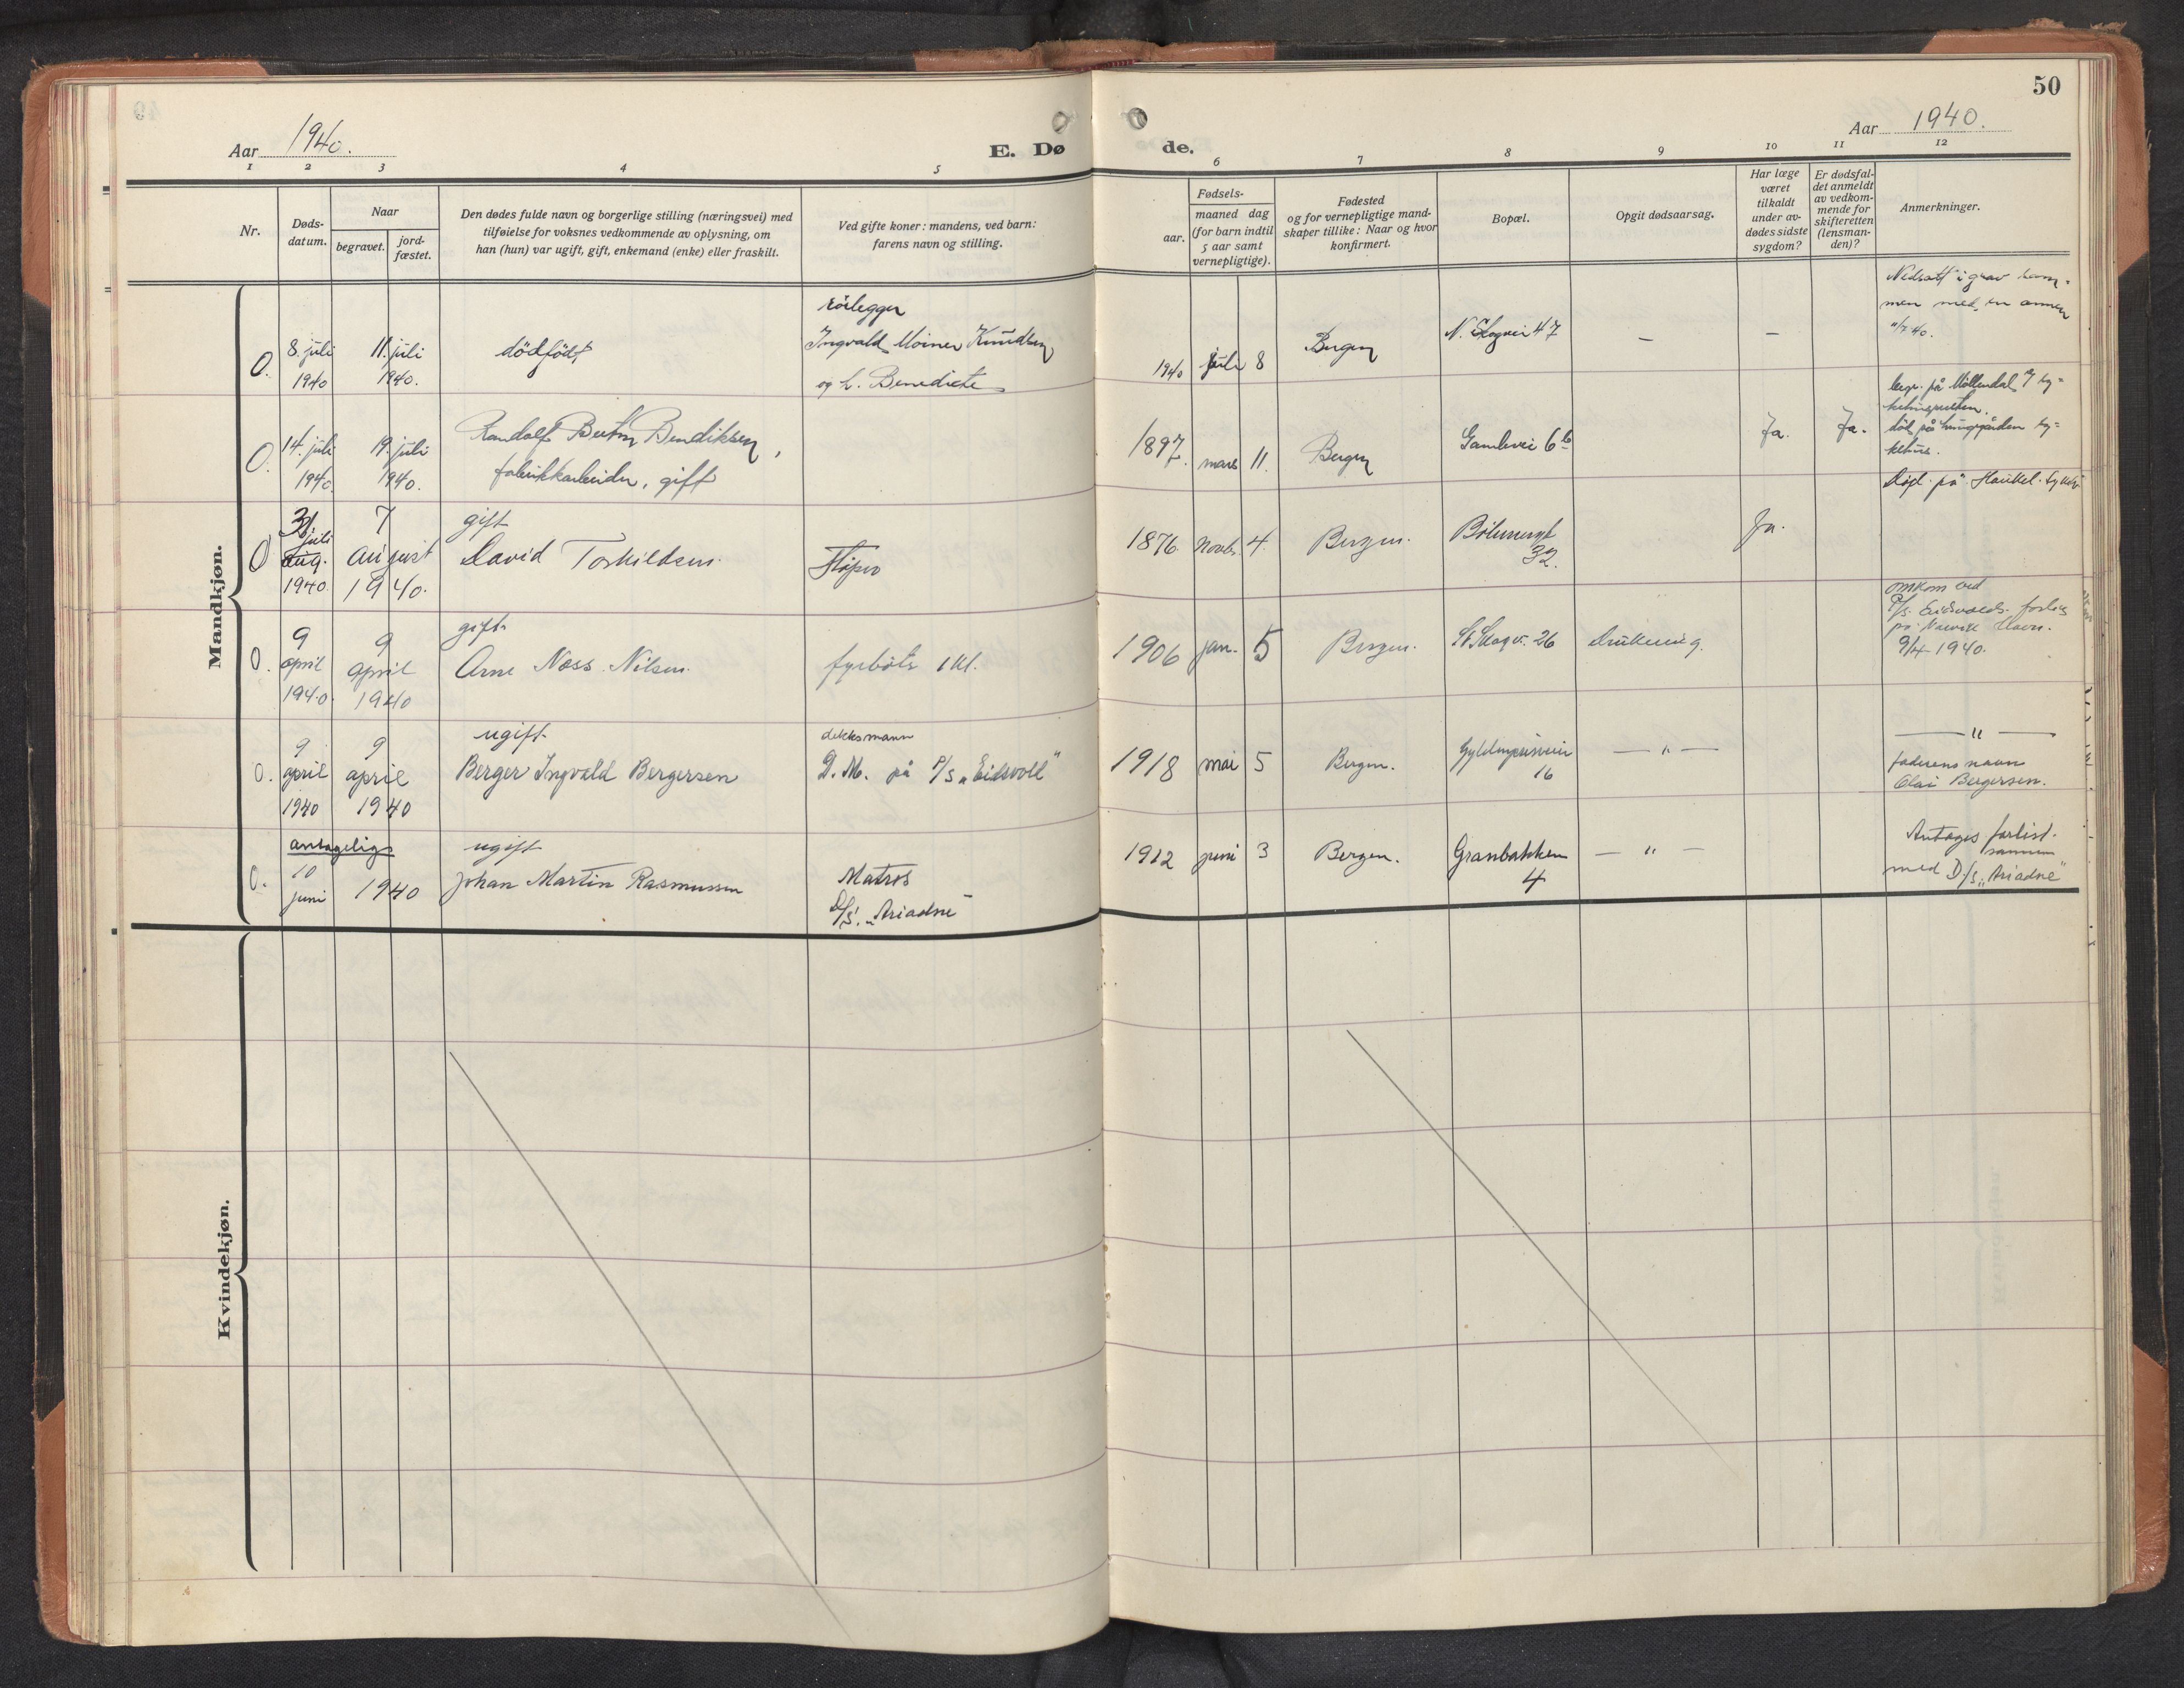 50
Aar 1940.
Aar 1940.
E. Dø
de.
1 2 3 4 5
6 7 8 9 10 11 12
Nr.
Døds-
datum.
Naar
begravet.
jord-
fæstet.
Den dødes fulde navn og borgerlige stilling (næringsvei) med
tilføielse for voksnes vedkommende av oplysning, om
han (hun) var ugift, gift, enkemand (enke) eller fraskilt.
Ved gifte koner: mandens, ved barn:
farens navn og stilling.
Fødsels-
aar.
maaned dag
(for barn indtil
5 aar samt
vernepligtige).
Fødested
og for vernepligtige mand-
skaper tillike: Naar og hvor
konfirmert.
Bopæl.
Opgit dødsaarsag.
Har læge
været
tilkaldt
under av-
dødes sidste
sygdom?
Er dødsfal-
det anmeldt
av vedkom-
mende for
skifteretten
(lensman-
den)?
Anmerkninger.
Mandkjøn.
0.
8. juli
1940
11. juli
1940.
dödfödt
rörlegger
Ingvald Knudsen
og h. Benedicte
1940 juli 8
Bergen
47
—
—
Nedsatt i grav sam-
men med en annen
0.
14. juli
1940
19. juli
1940.
Randolf Bendiksen,
fabrikkarbeider, gift
1897. mars 11.
Bergen
Gamlevei 6b
Ja.
Ja.
begr. på Möllendal
död på sy-
kehus.
0
31 juli
aug.
1940.
7
august
1940.
gift
David Torkildsen.
Støper
1876. Novb. 4.
Bergen.
32.
Ja.
Död på Haukel. sykeh.
0.
9
april
1940.
9
april
1940
gift.
Arne Næss Nilsen.
fyrböter 1 kl.
1906 jan. 5
Bergen.
St. Skogv. 26
drukning.
omkom ved
P/s. Eidsvolds forlis
på Narvik Havn.
9/4-1940.
0.
9
april
1940
9
april
1940
ugift.
Berger Ingvald Bergersen
dekksmann
D.M. på P/s „Eidsvoll"
1918 mai 5
Bergen.
16
— " —
— " —
faderens navn
Olai Bergersen.
0.
antagelig
10
juni
1940
ugift
Johan Martin Rasmussen
Matros
D/S. „Ariadne"
1912 juni 3
Bergen.
Granbakken
4
— " —
Antages forlist
sammen
med D/s „Ariadne"
Kvindekjøn.